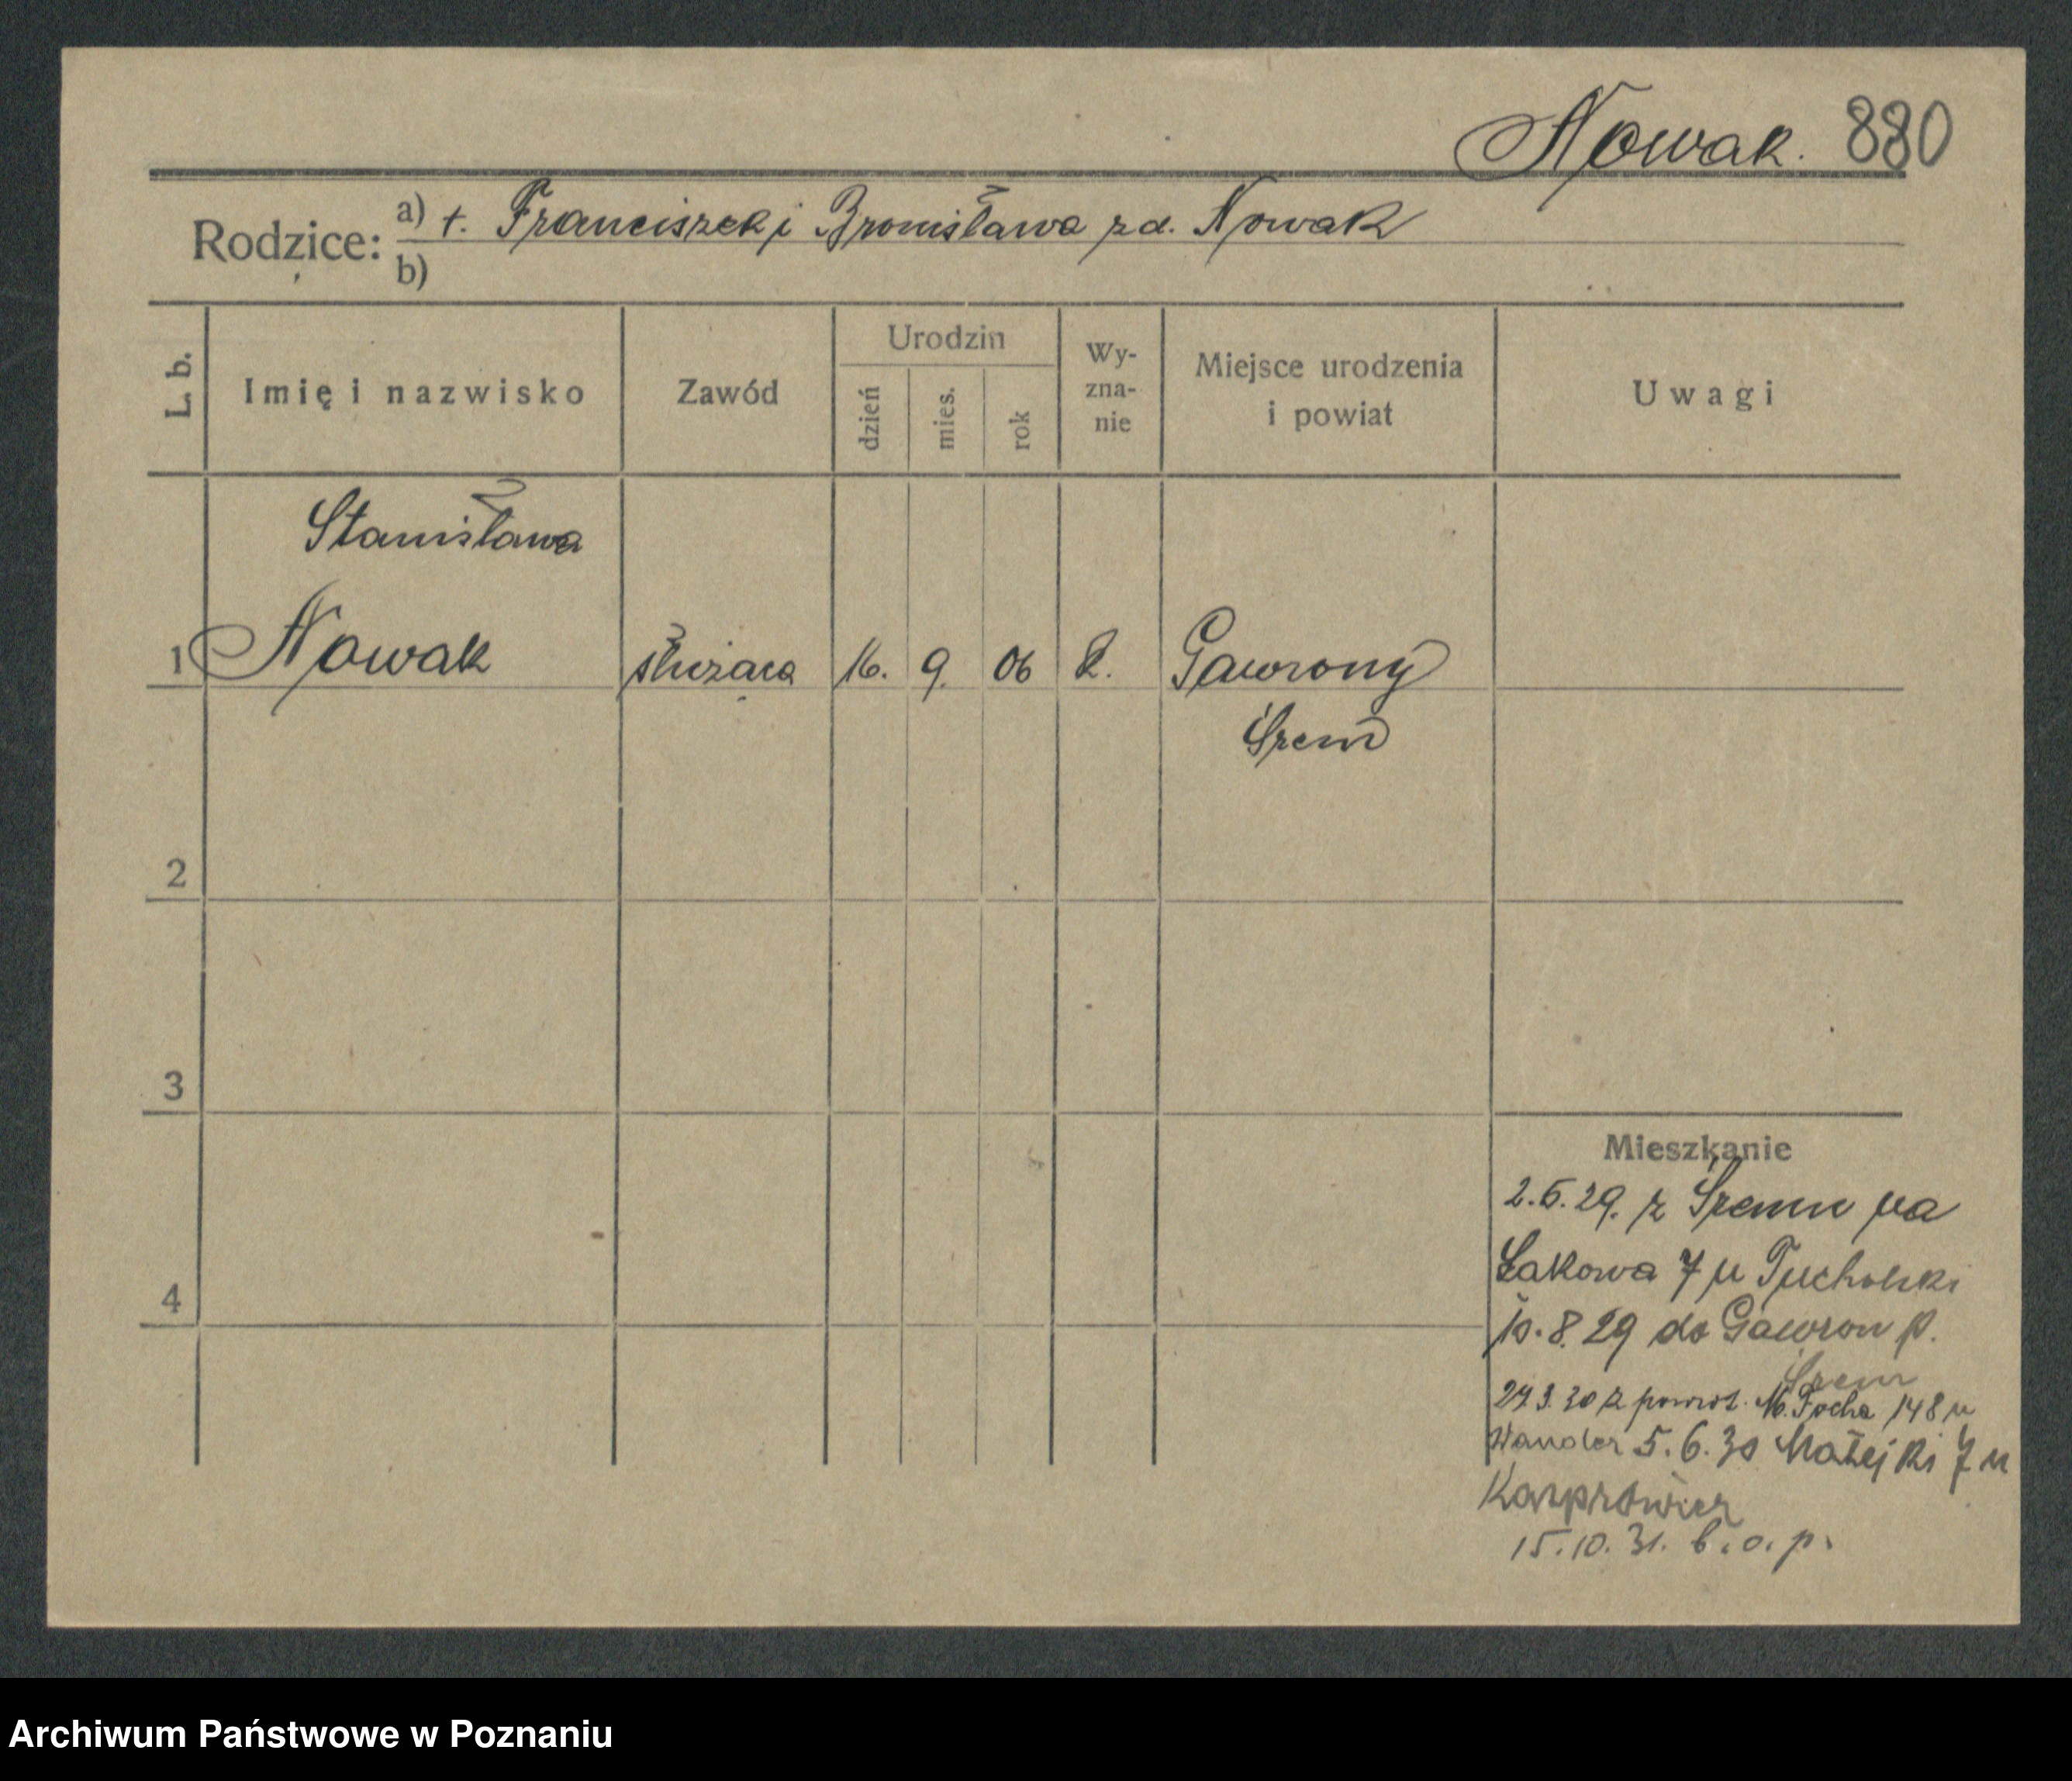 Nowak. 880
Rodzice: a) t. Franciszek i Bronisława zd. Nowak
b)
L. b. Imię i nazwisko Zawód Urodzin dzień mies. rok Wy- zna- nie Miejsce urodzenia i powiat Uwagi
Stanisława
1 Nowak służąca 16. 9. 06 Gawrony
Śrem
2
3
Mieszkanie
2.5.29. z Śremu na
4 Łąkowa 7 u Tucholski
8.29 do Gawron p.
Śrem
30 z powrot. M. Focha 148 u
Wander 5.6.30 Matejki 7 u
Kasprowicz
15.10.31. b.o.p.
Archiwum Państwowe w Poznaniu